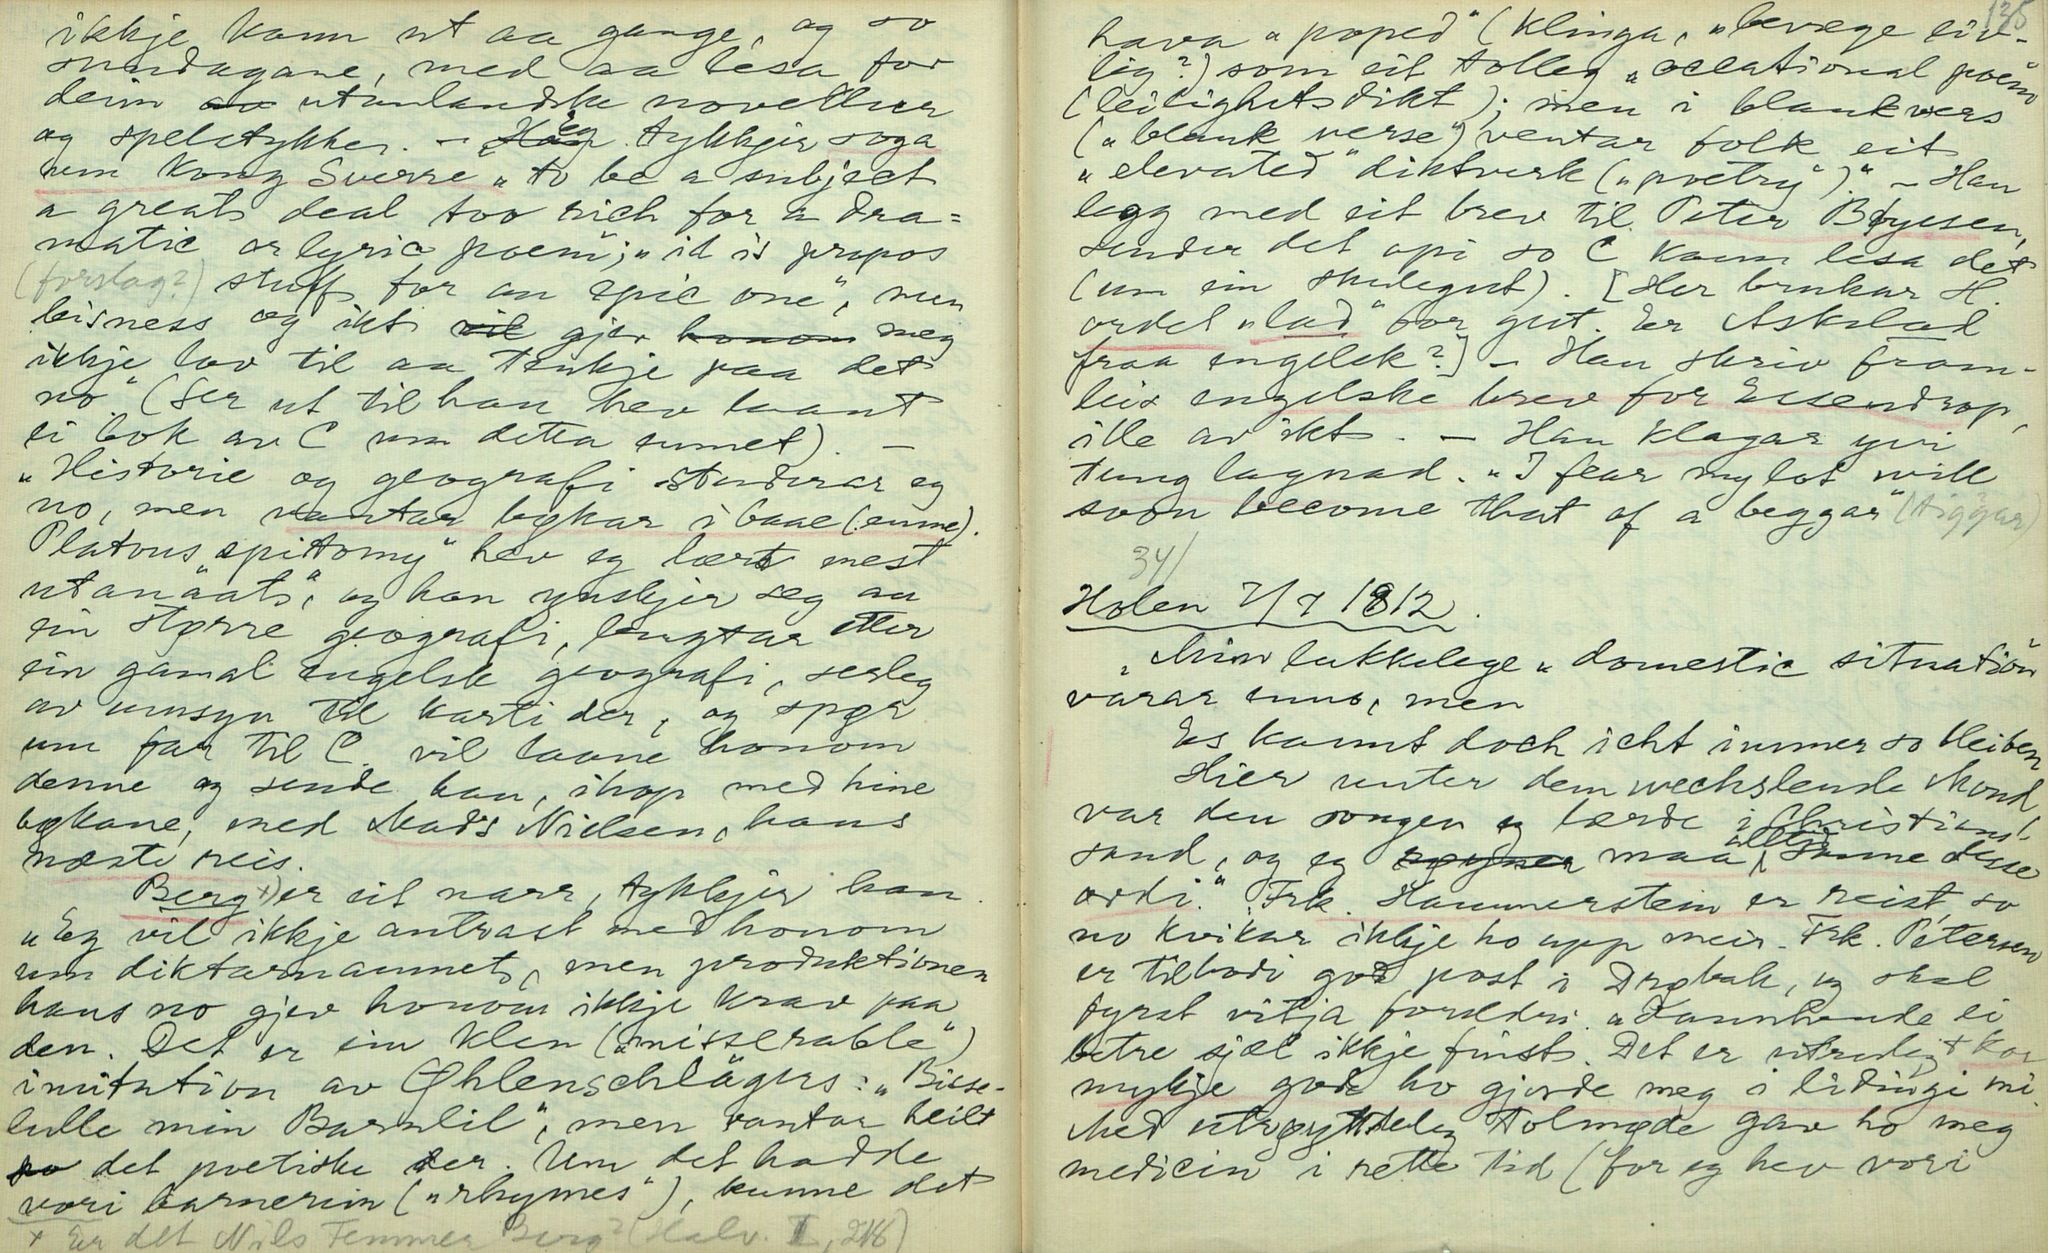 ikkje kann ut aa gange, og so
sundagane, med aa lesa for
deim av utanlandske novellur
og spelstykker. - Han eg tykkjer soga
um Kong Sverre "to be a subject
a great deal too rich for a dra=
matic or lyric poem"; "it is propos
(forslag?) stuff for an epic one", men
bisness og ikt vil gjev honom meg
ikkje lov til aa tenkje paa det
no." (Ser ut til han hev laant
ei bok av C um detta emnet). -
"Historie og geografi studerar eg
no, men vantar bøkar i baae (emne).
Platous "epitomy" hev eg lært mest
utanaat", og han ynskjer seg aa
ein større geografi, lengtar etter
ein gamal engelsk geografi, serleg
av umsyn til karti der, og spør
um far til C. vil laane honom
denne og sende han, ihop med hine
bøkane, med Mads Nielsen, hans
næste reis.
Berg x) er eit narr, tykkjer han.
"Eg vil ikkje antrast med honom
um diktarnamnet, men produktionen
hans no gjev honom ikkje krav paa
den. Det er ein klen ("misserable")
imitation av Øhlenschlägers: "Bisse-
lulle min Barnlil", men vantar heilt
so det poetiske der. Um det hadde
vori barnerim ("rhymes"), kunne det
x Er det Nils Temmer Berg? (Halv. I, 218)
135
hava "poped" (klinga, "bevæge eiv-
lig?) som eit tolleg "occational poem"
(leilighetsdikt); men i blankvers
("blank verse") ventar folk eit
"elevated" diktverk ("poetry")." - Han
legg med eit brev til Peter Bøyesen,
sender det opi so C kann lesa det
(um ein skulegut). [Her brukar H.
ordet "lad" for gut. Er Askelad
fraa engelsk?] - Han skriv fram-
leis engelske brev for Essendrop,
ille av ikt. - Han klagar yvi
tung lagnad. "I fear my lot will
soon become that of a beggar" (tiggar)
34/
Holen 7/7 1812.
"Min lukkelege "domestic situation"
varar enno, men
Es kannt doch icht immer so bleiben
Hier unter dem wechslende Mond
var den songen eg lærde i Christians-
sand, og eg maa alltid sanne desse
ordi." Frk. Hammerstein er reist, so
no kvikar ikkje ho upp meir. Frk. Petersen
er tilbodi god post i Drøbak, og skal
fyrst vitja foreldri. "Sannhende ei
betre sjæl ikkje finst. Det er utruleg + kor
mykje godt ho gjorde meg i lidingi mi.
Med utrøytteleg tolmøde gav ho meg
medicin i rette tid (for eg hev vori